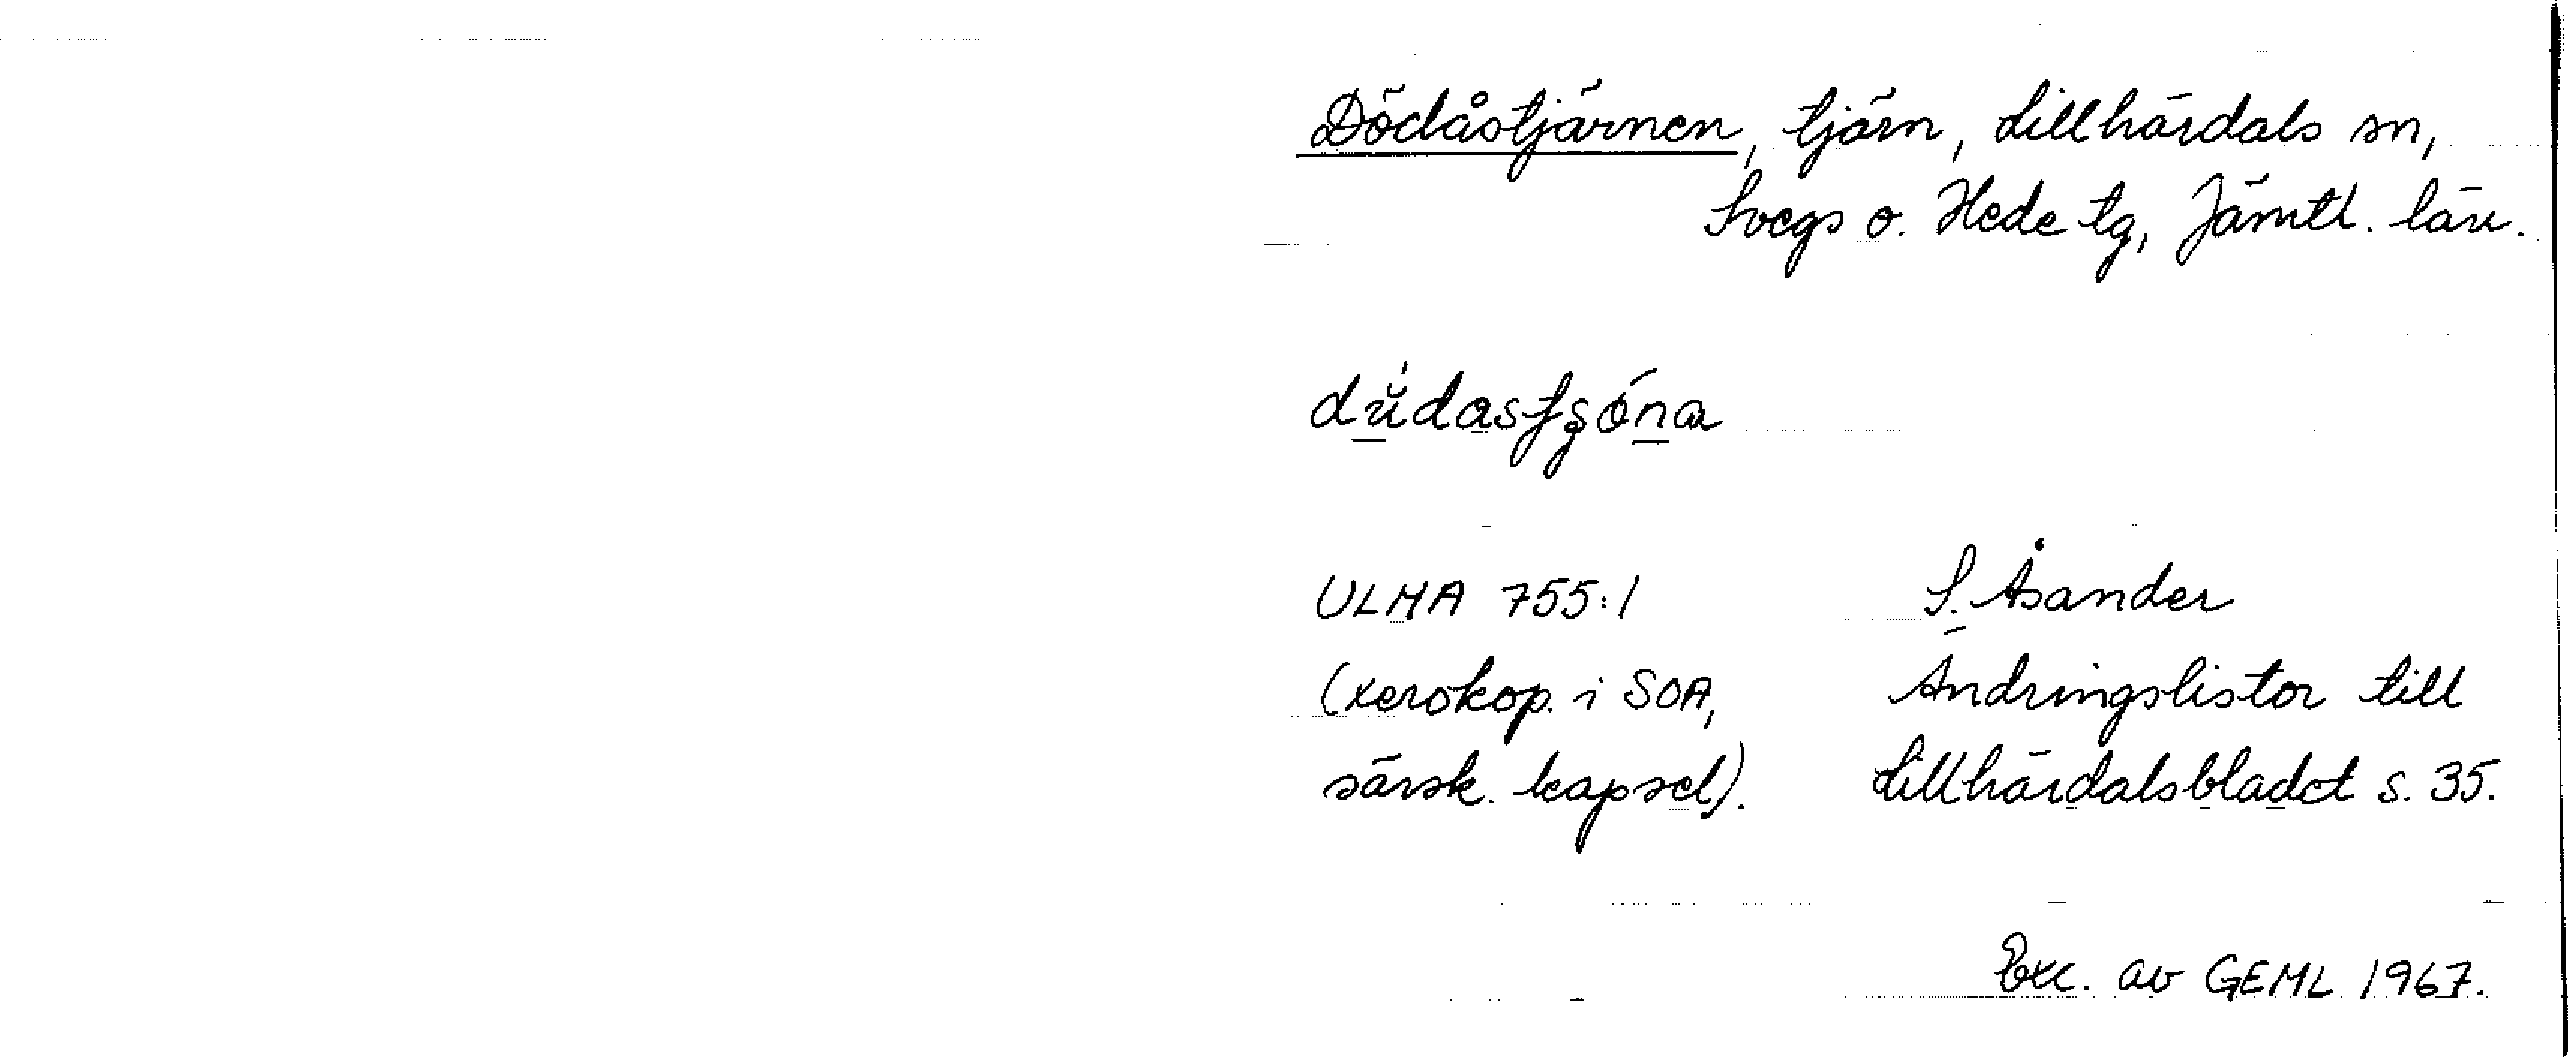 Dödåstjärnen, tjärn, Lillhärdals sn,
Svegs o. Hede tg, Jämtl. län.
ULMA 755:1 S. Åsander
(xerokop. i SOA, Ändringslistor till
särsk. kapsel). Lillhärdalsbladet s. 35.
Exc. av GEML 1967.